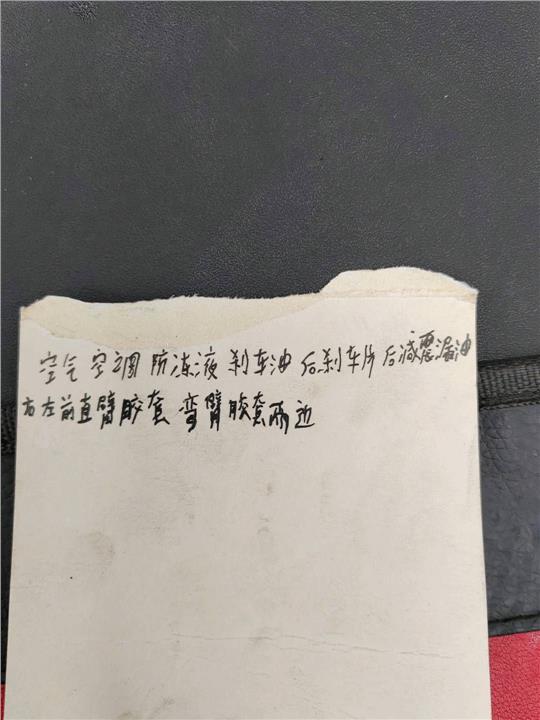 空气 空调 防冻液 刹车油 后刹车片 后减震漏油
右左前直臂胶套 弯臂胶套两边